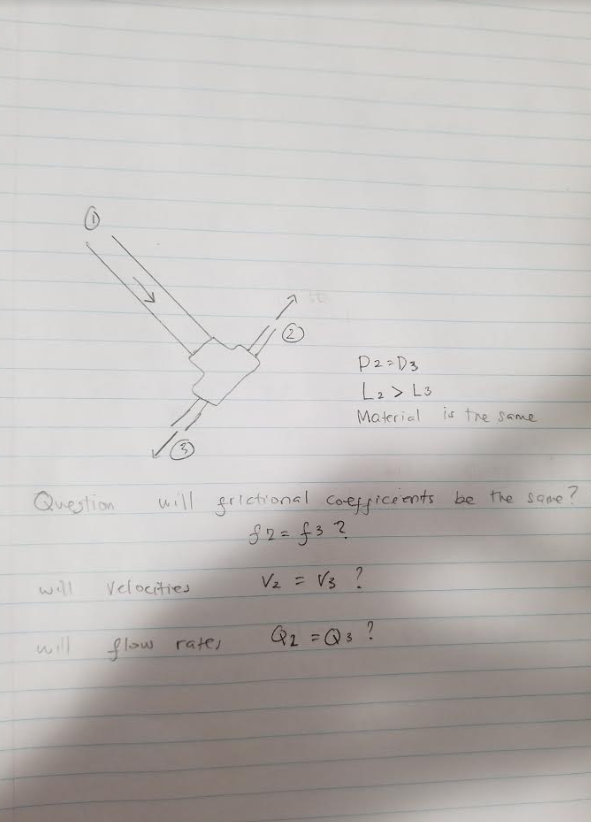 ①
②
D2=D3
L2 > L3
Material is the same
③
Question will frictional coefficients be the same?
f2 = f3 ?
will velocities V2 = V3 ?
will flow rates Q2 = Q3 ?